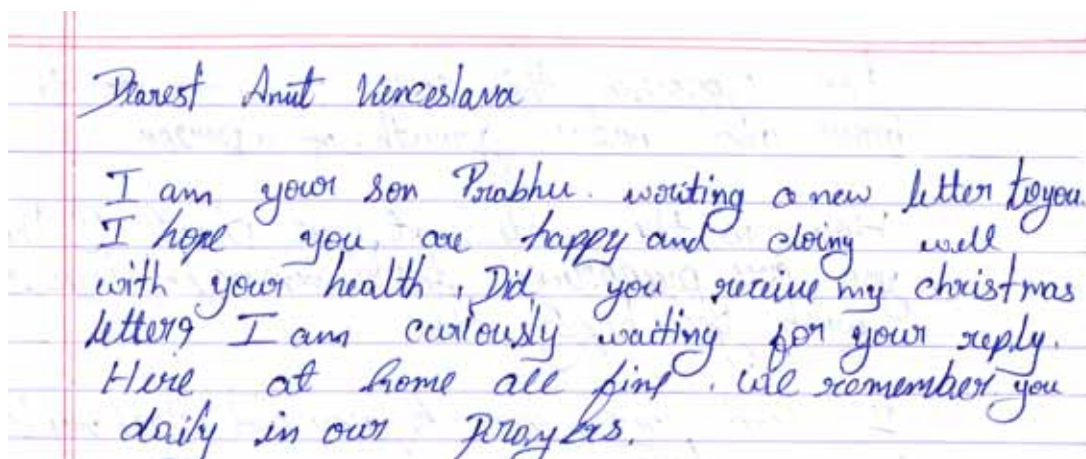 Diarest Anut Vienceslava
I am your son Prabhu. writing a new letter to you
I hope you are happy and doing well
with your health, Did you receive my christmas
letter? I am curiously waiting for your reply.
Here at home all fine. We remember you
daily in our Prayers.